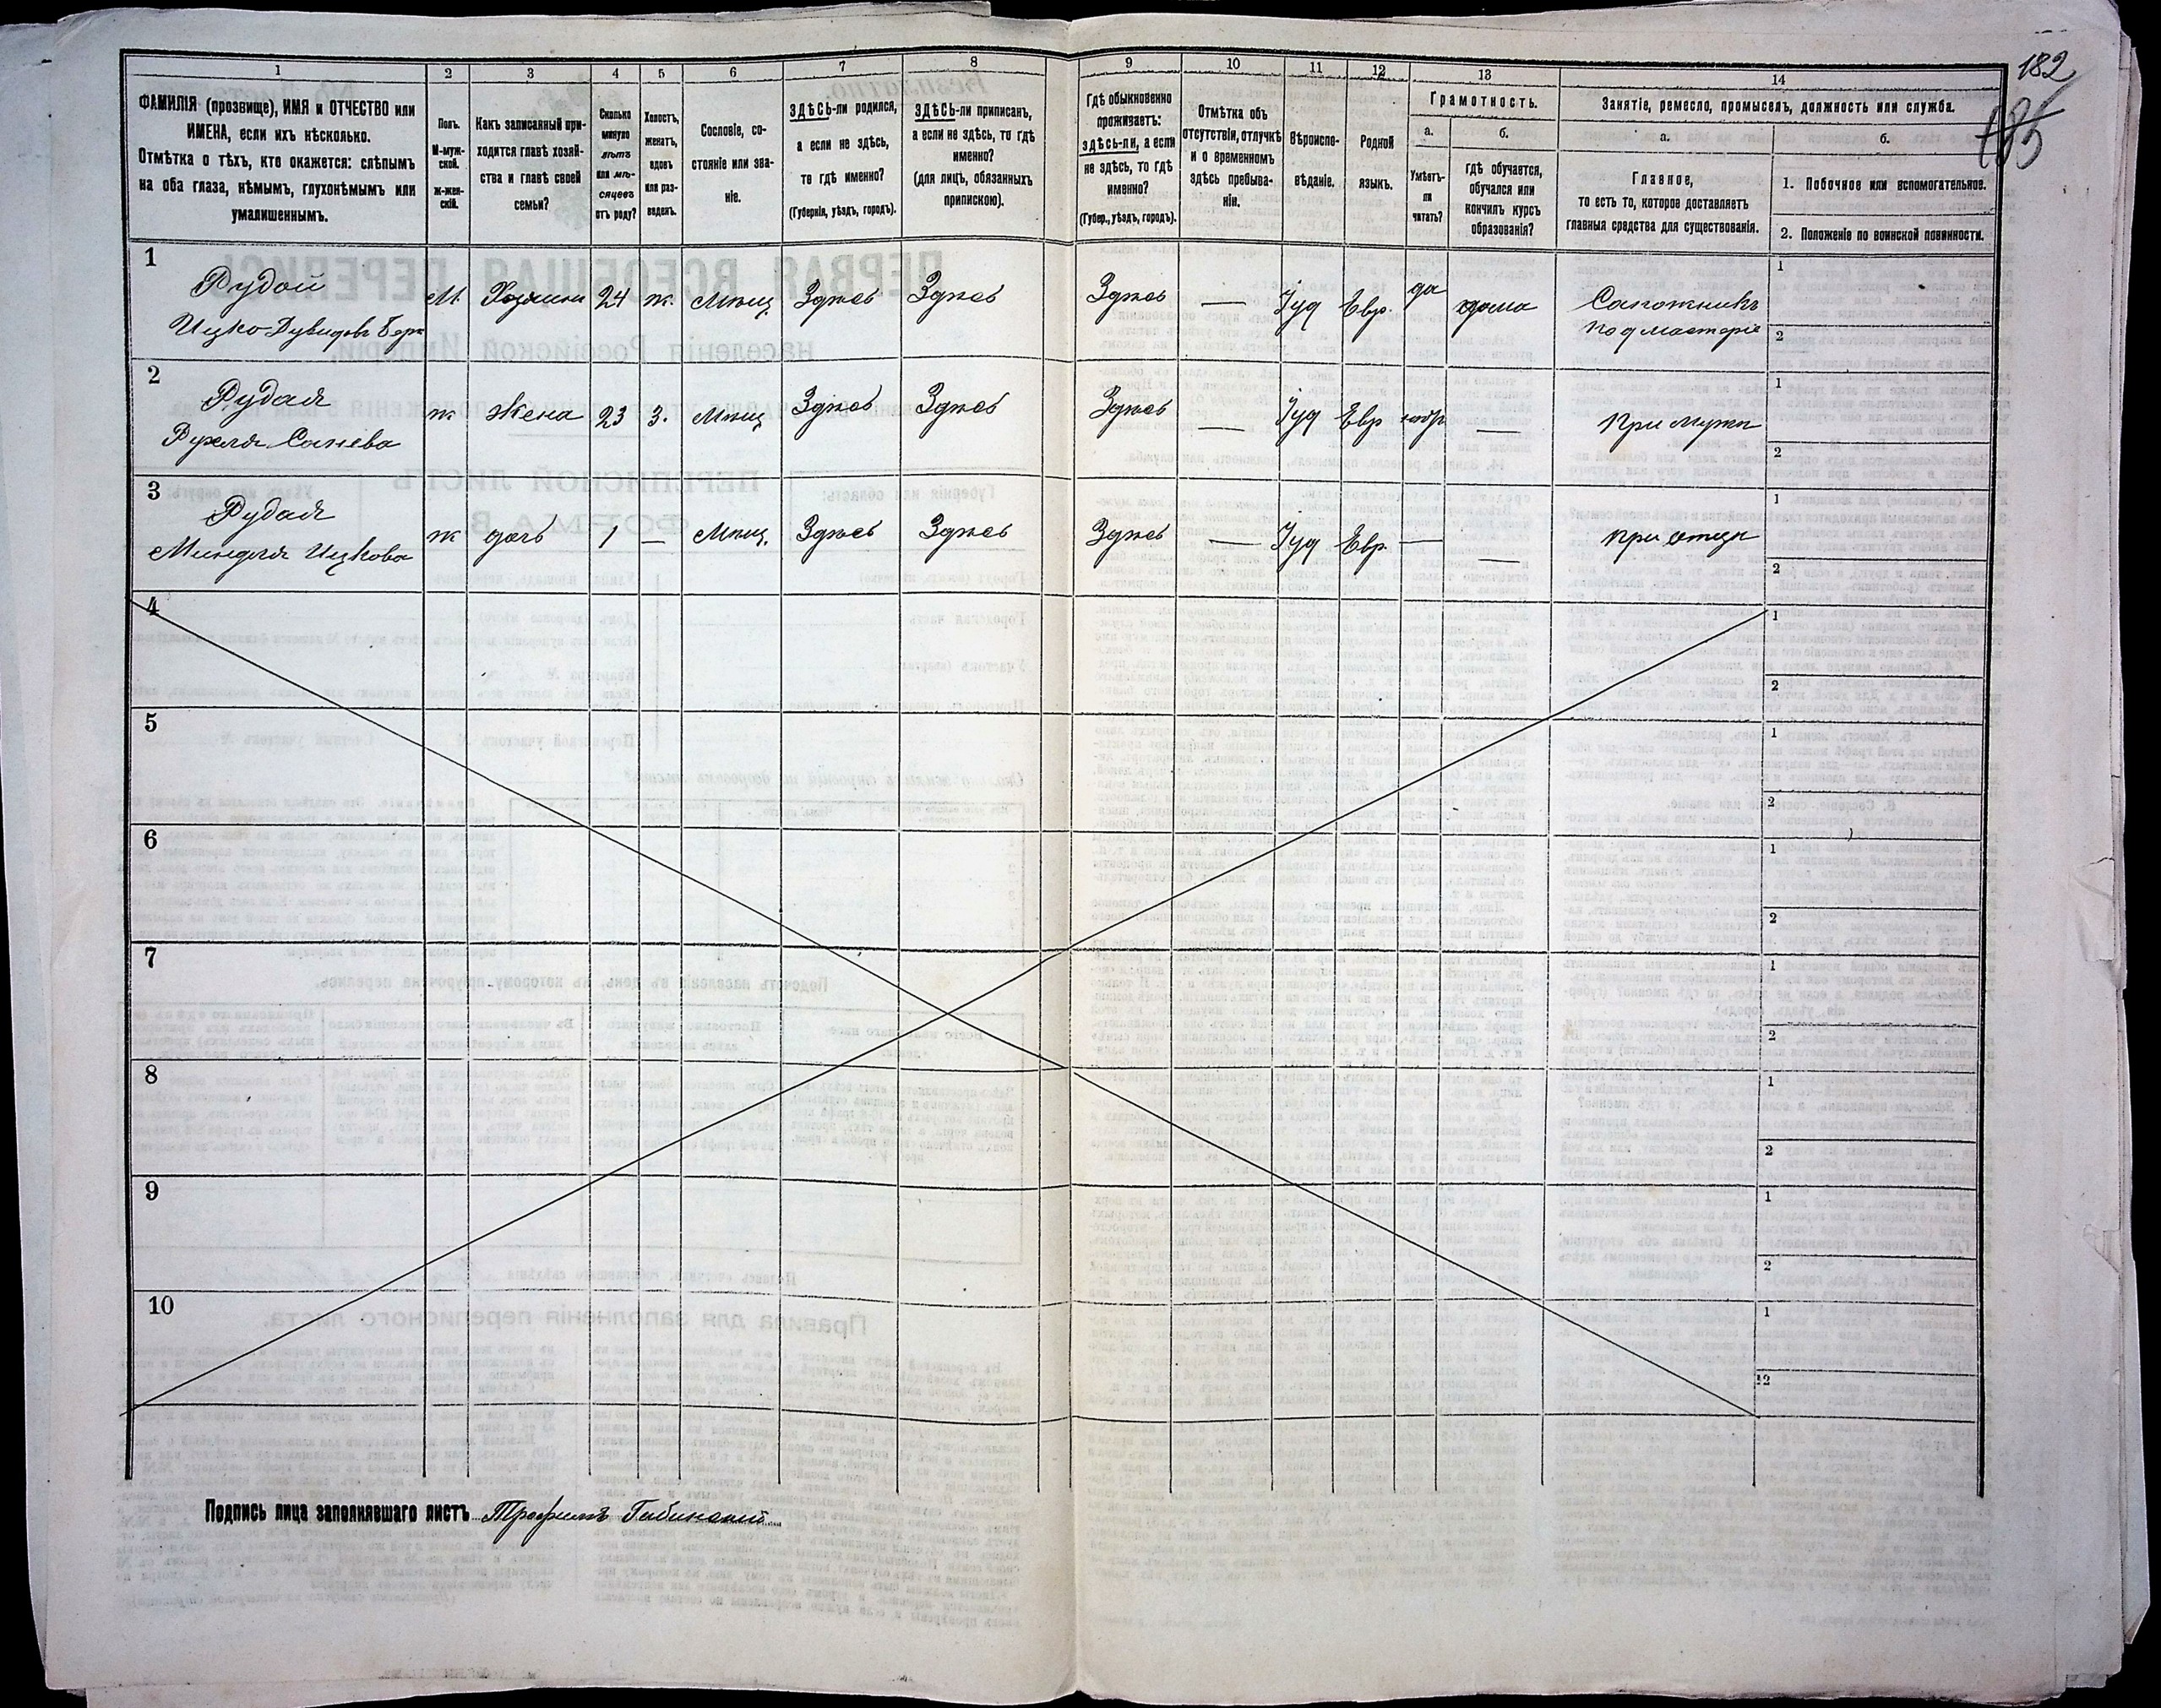 182
185
1 2 3 4 5 6 7 8 9 10 11 12 13 14
ФАМИЛІЯ (прозвище), ИМЯ и ОТЧЕСТВО или
ИМЕНА, если ихъ нѣсколько.
Отмѣтка о тѣхъ, кто окажется: слѣпымъ
на оба глаза, нѣмымъ, глухонѣмымъ или
умалишеннымъ.
Полъ.
М-муж-
ской.
Ж-жен-
скій.
Какъ записанный при-
ходится главѣ хозяй-
ства и главѣ своей
семьи?
Сколько
минуло
лѣтъ
или мѣ-
сяцевъ
отъ роду?
Холостъ,
женатъ,
вдовъ
или раз-
веденъ.
Сословіе, со-
стояніе или зва-
ніе.
ЗДѢСЬ-ли родился,
а если не здѣсь,
то гдѣ именно?
(Губернія, уѣздъ, городъ).
ЗДѢСЬ-ли приписан,
а если не здѣсь, то гдѣ
именно?
(для лицъ, обязанныхъ
припискою).
Гдѣ обыкновенно
проживаетъ:
здѣсь-ли, а если
не здѣсь, то гдѣ
именно?
(Губер., уѣздъ, городъ).
Отмѣтка объ
отсутствіи, отлучкѣ
и о временномъ
здѣсь пребыва-
ніи.
Вѣроиспо-
вѣданіе.
Родной
языкъ.
Грамотность.
а.
Умѣетъ-
ли
читать?
б.
Гдѣ обучается,
обучался или
кончилъ курсъ
образованія?
Занятіе, ремесло, промыселъ, должность или служба.
а.
Главное,
то есть то, которое доставляетъ
главныя средства для существованія.
б.
1. Побочное или вспомогательное.
2. Положеніе по воинской повинности.
1
Рудой
Ицко-Дувидовъ Берк
М. Хозяинъ 24 ж. Мѣщ. Здѣсь Здѣсь Здѣсь — Іуд Евр. да дома Сапожникъ
подмастеріе
1
2
2
Рудая
Рухля Санева
ж жена 23 з. Мѣщ Здѣсь Здѣсь Здѣсь — Іуд Евр — При мужѣ
1
2
3
Рудая
Миндля Ицкова
ж дочь 1 — Мѣщ. Здѣсь Здѣсь Здѣсь — Іуд Евр. — — при отцѣ
1
2
4
1
2
5
1
2
6
1
2
7
1
2
8
1
2
9
1
2
10
1
2
Подпись лица заполнявшаго листъ Трофимъ Гибинскій